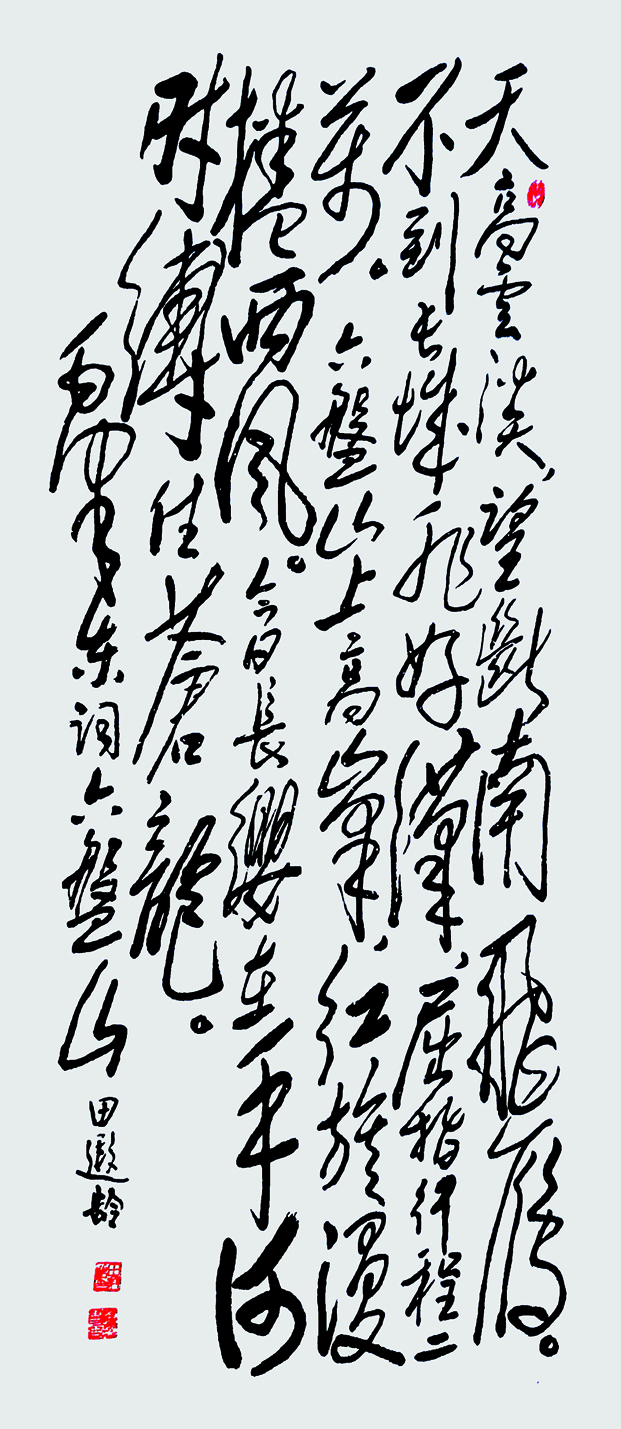 天高雲淡、望斷南飛雁。
不到长城非好漢、屈指行程二
萬。六盤山上高峯、红旗漫
捲西風。今日長纓在手何
时縛住蒼龍。
毛澤东詞六盤山 田遐齡